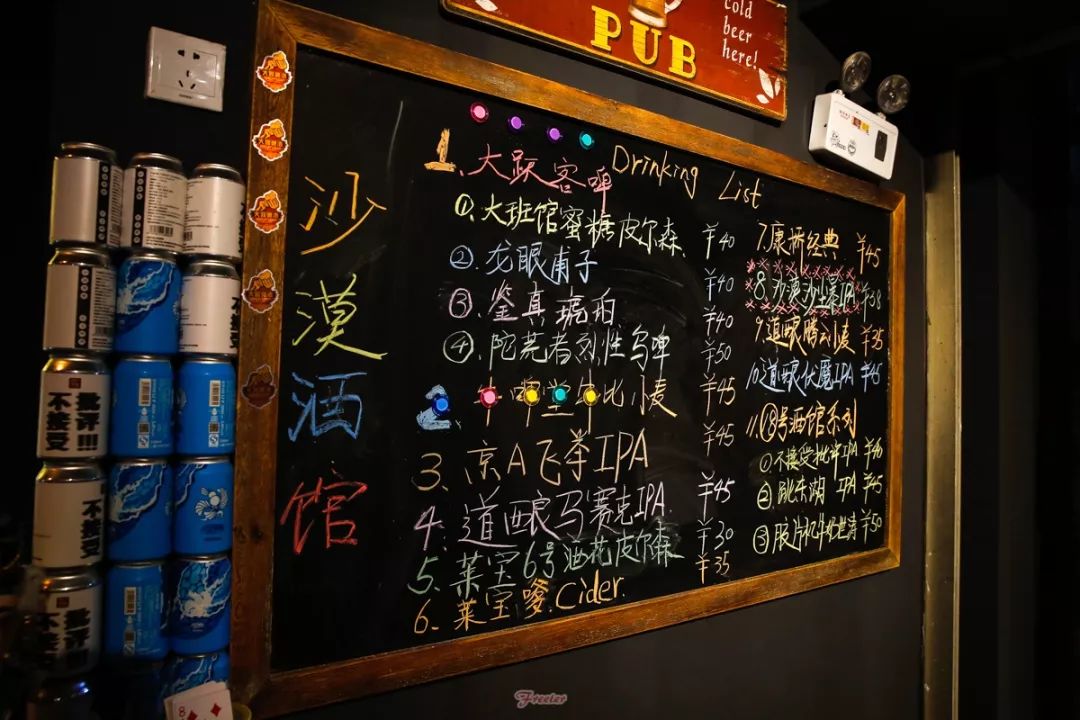 PUB
cold
beer
here!
沙漠酒馆
Drinking List
1. 大跃客啤
①. 大班馆蜜糖皮尔森 ¥40
②. 龙眼甫子 ¥40
③. 鉴真琥珀 ¥40
④. 陀荒者烈性乌啤 ¥50
2. 牛啤堂 比小麦 ¥45
3. 京A飞拳IPA ¥45
4. 道酿马赛克IPA ¥45
5. 莱宝6号酒花皮尔森 ¥30
6. 莱宝嗲.Cider. ¥35
7. 康桥经典 ¥45
8. 沙漠沙尘暴IPA ¥38
9. 道酿腾云小麦 ¥35
10. 道酿伏魔IPA ¥45
11. ⑱号酒馆系列
① 不接受批评IPA ¥40
② 跳东湖 IPA ¥45
③ 世涛 ¥50
不接受
批评!!!
不接受
批评
Freeter
8